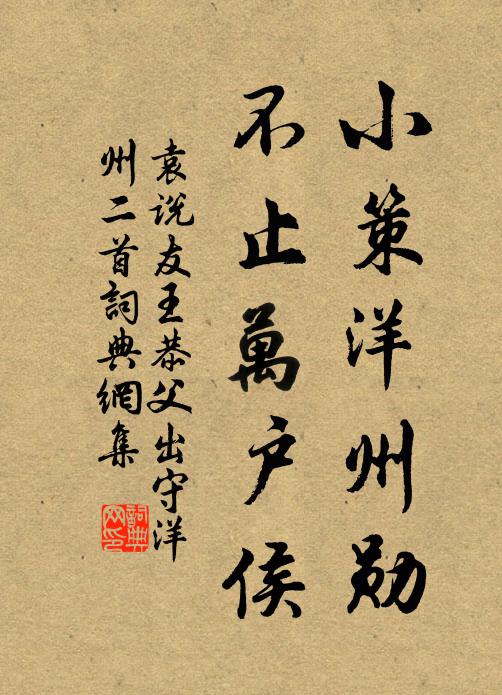 小策洋州勋
不止萬户侯
袁说友王恭父出守洋
州二首詞典網集
詞典
网印